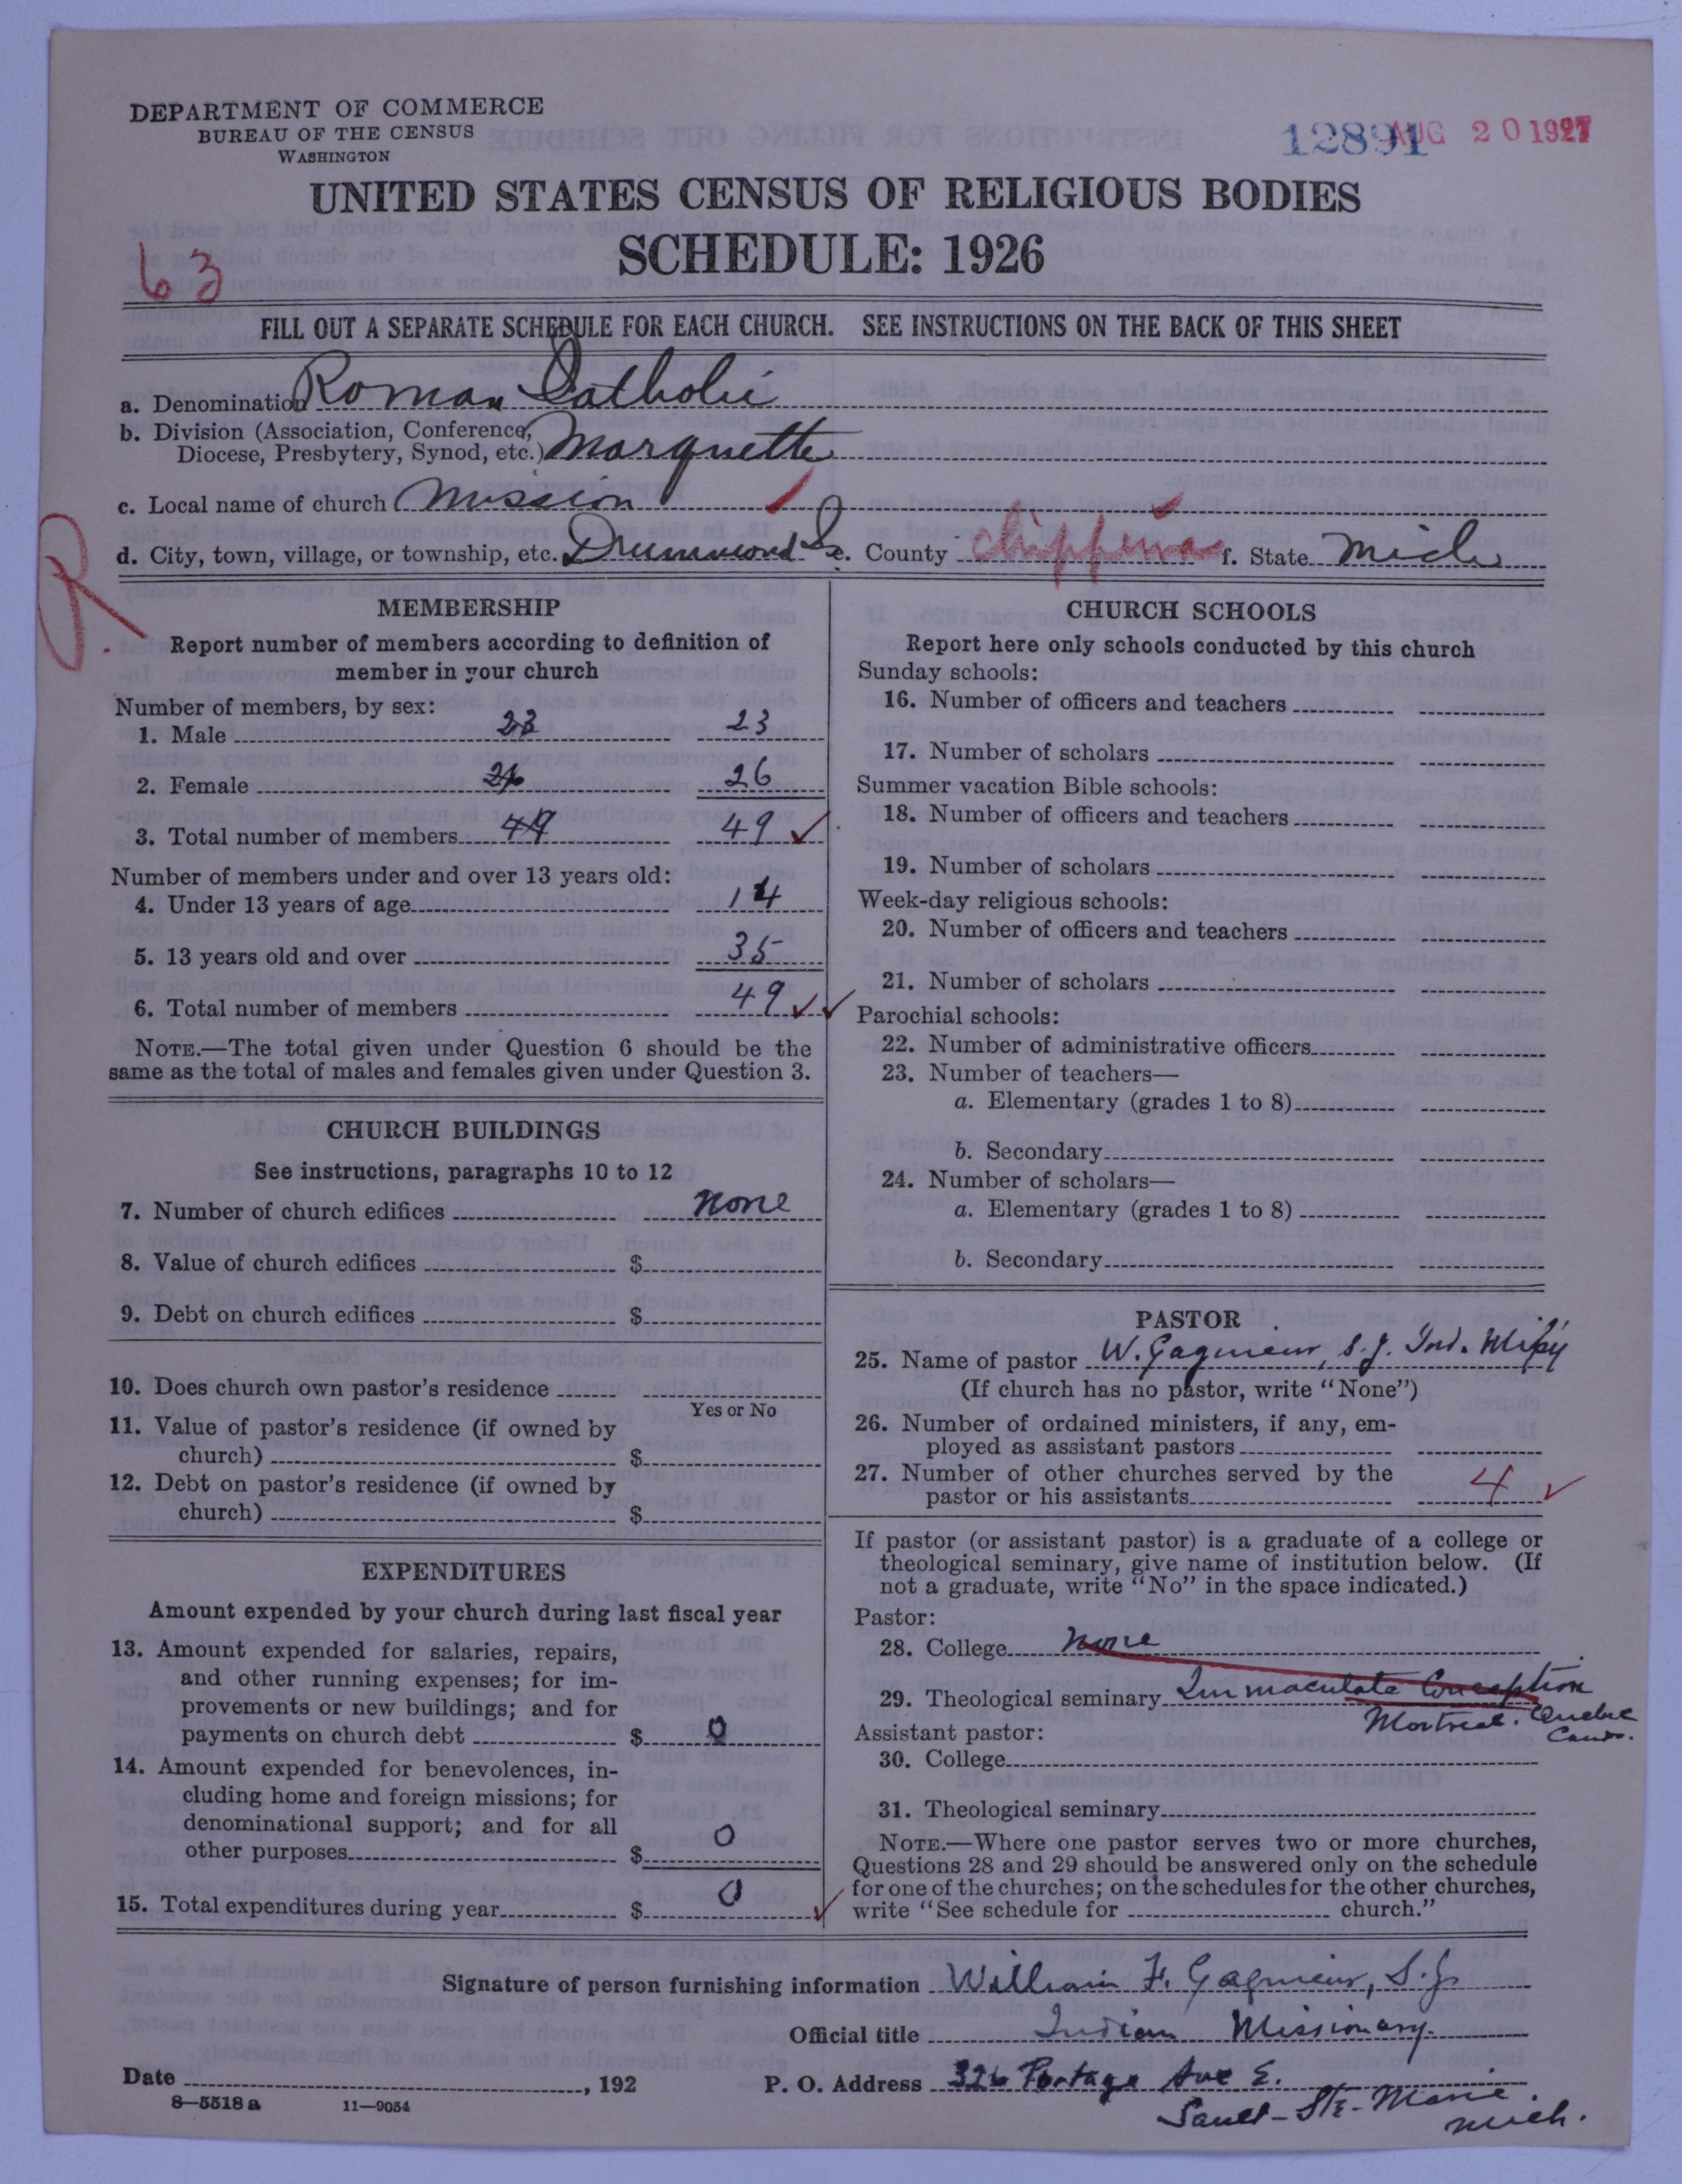 DEPARTMENT OF COMMERCE
BUREAU OF THE CENSUS
WASHINGTON
12891 AUG 20 1927
UNITED STATES CENSUS OF RELIGIOUS BODIES
SCHEDULE: 1926
63
FILL OUT A SEPARATE SCHEDULE FOR EACH CHURCH. SEE INSTRUCTIONS ON THE BACK OF THIS SHEET
a. Denomination Roman Catholic
b. Division (Association, Conference,
Diocese, Presbytery, Synod, etc.) Marquette
c. Local name of church Mission
d. City, town, village, or township, etc. Drummond Is. e. County Chippewa f. State Mich
R
MEMBERSHIP
Report number of members according to definition of
member in your church
Number of members, by sex:
1. Male 23 23
2. Female 26 26
3. Total number of members 49 49
Number of members under and over 13 years old:
4. Under 13 years of age 14
5. 13 years old and over 35
6. Total number of members 49
NOTE.—The total given under Question 6 should be the
same as the total of males and females given under Question 3.
CHURCH BUILDINGS
See instructions, paragraphs 10 to 12
7. Number of church edifices none
8. Value of church edifices $
9. Debt on church edifices $
10. Does church own pastor's residence
Yes or No
11. Value of pastor's residence (if owned by
church) $
12. Debt on pastor's residence (if owned by
church) $
EXPENDITURES
Amount expended by your church during last fiscal year
13. Amount expended for salaries, repairs,
and other running expenses; for im-
provements or new buildings; and for
payments on church debt $ 0
14. Amount expended for benevolences, in-
cluding home and foreign missions; for
denominational support; and for all
other purposes $ 0
15. Total expenditures during year $ 0
CHURCH SCHOOLS
Report here only schools conducted by this church
Sunday schools:
16. Number of officers and teachers
17. Number of scholars
Summer vacation Bible schools:
18. Number of officers and teachers
19. Number of scholars
Week-day religious schools:
20. Number of officers and teachers
21. Number of scholars
Parochial schools:
22. Number of administrative officers
23. Number of teachers—
a. Elementary (grades 1 to 8)
b. Secondary
24. Number of scholars—
a. Elementary (grades 1 to 8)
b. Secondary
PASTOR
25. Name of pastor W. Gagnieur, S.J. Ind. Missy
(If church has no pastor, write "None")
26. Number of ordained ministers, if any, em-
ployed as assistant pastors
27. Number of other churches served by the
pastor or his assistants 4
If pastor (or assistant pastor) is a graduate of a college or
theological seminary, give name of institution below. (If
not a graduate, write "No" in the space indicated.)
Pastor:
28. College None
29. Theological seminary Immaculate Conception
Montreal. Quebec
Assistant pastor: Canad.
30. College
31. Theological seminary
NOTE.—Where one pastor serves two or more churches,
Questions 28 and 29 should be answered only on the schedule
for one of the churches; on the schedules for the other churches,
write "See schedule for church."
Signature of person furnishing information William F. Gagnieur, S.J.
Official title Indian Missionary.
Date , 192 P. O. Address 326 Portage Ave E.
Sault-Ste-Marie.
Mich.
8—5518 a 11—9054